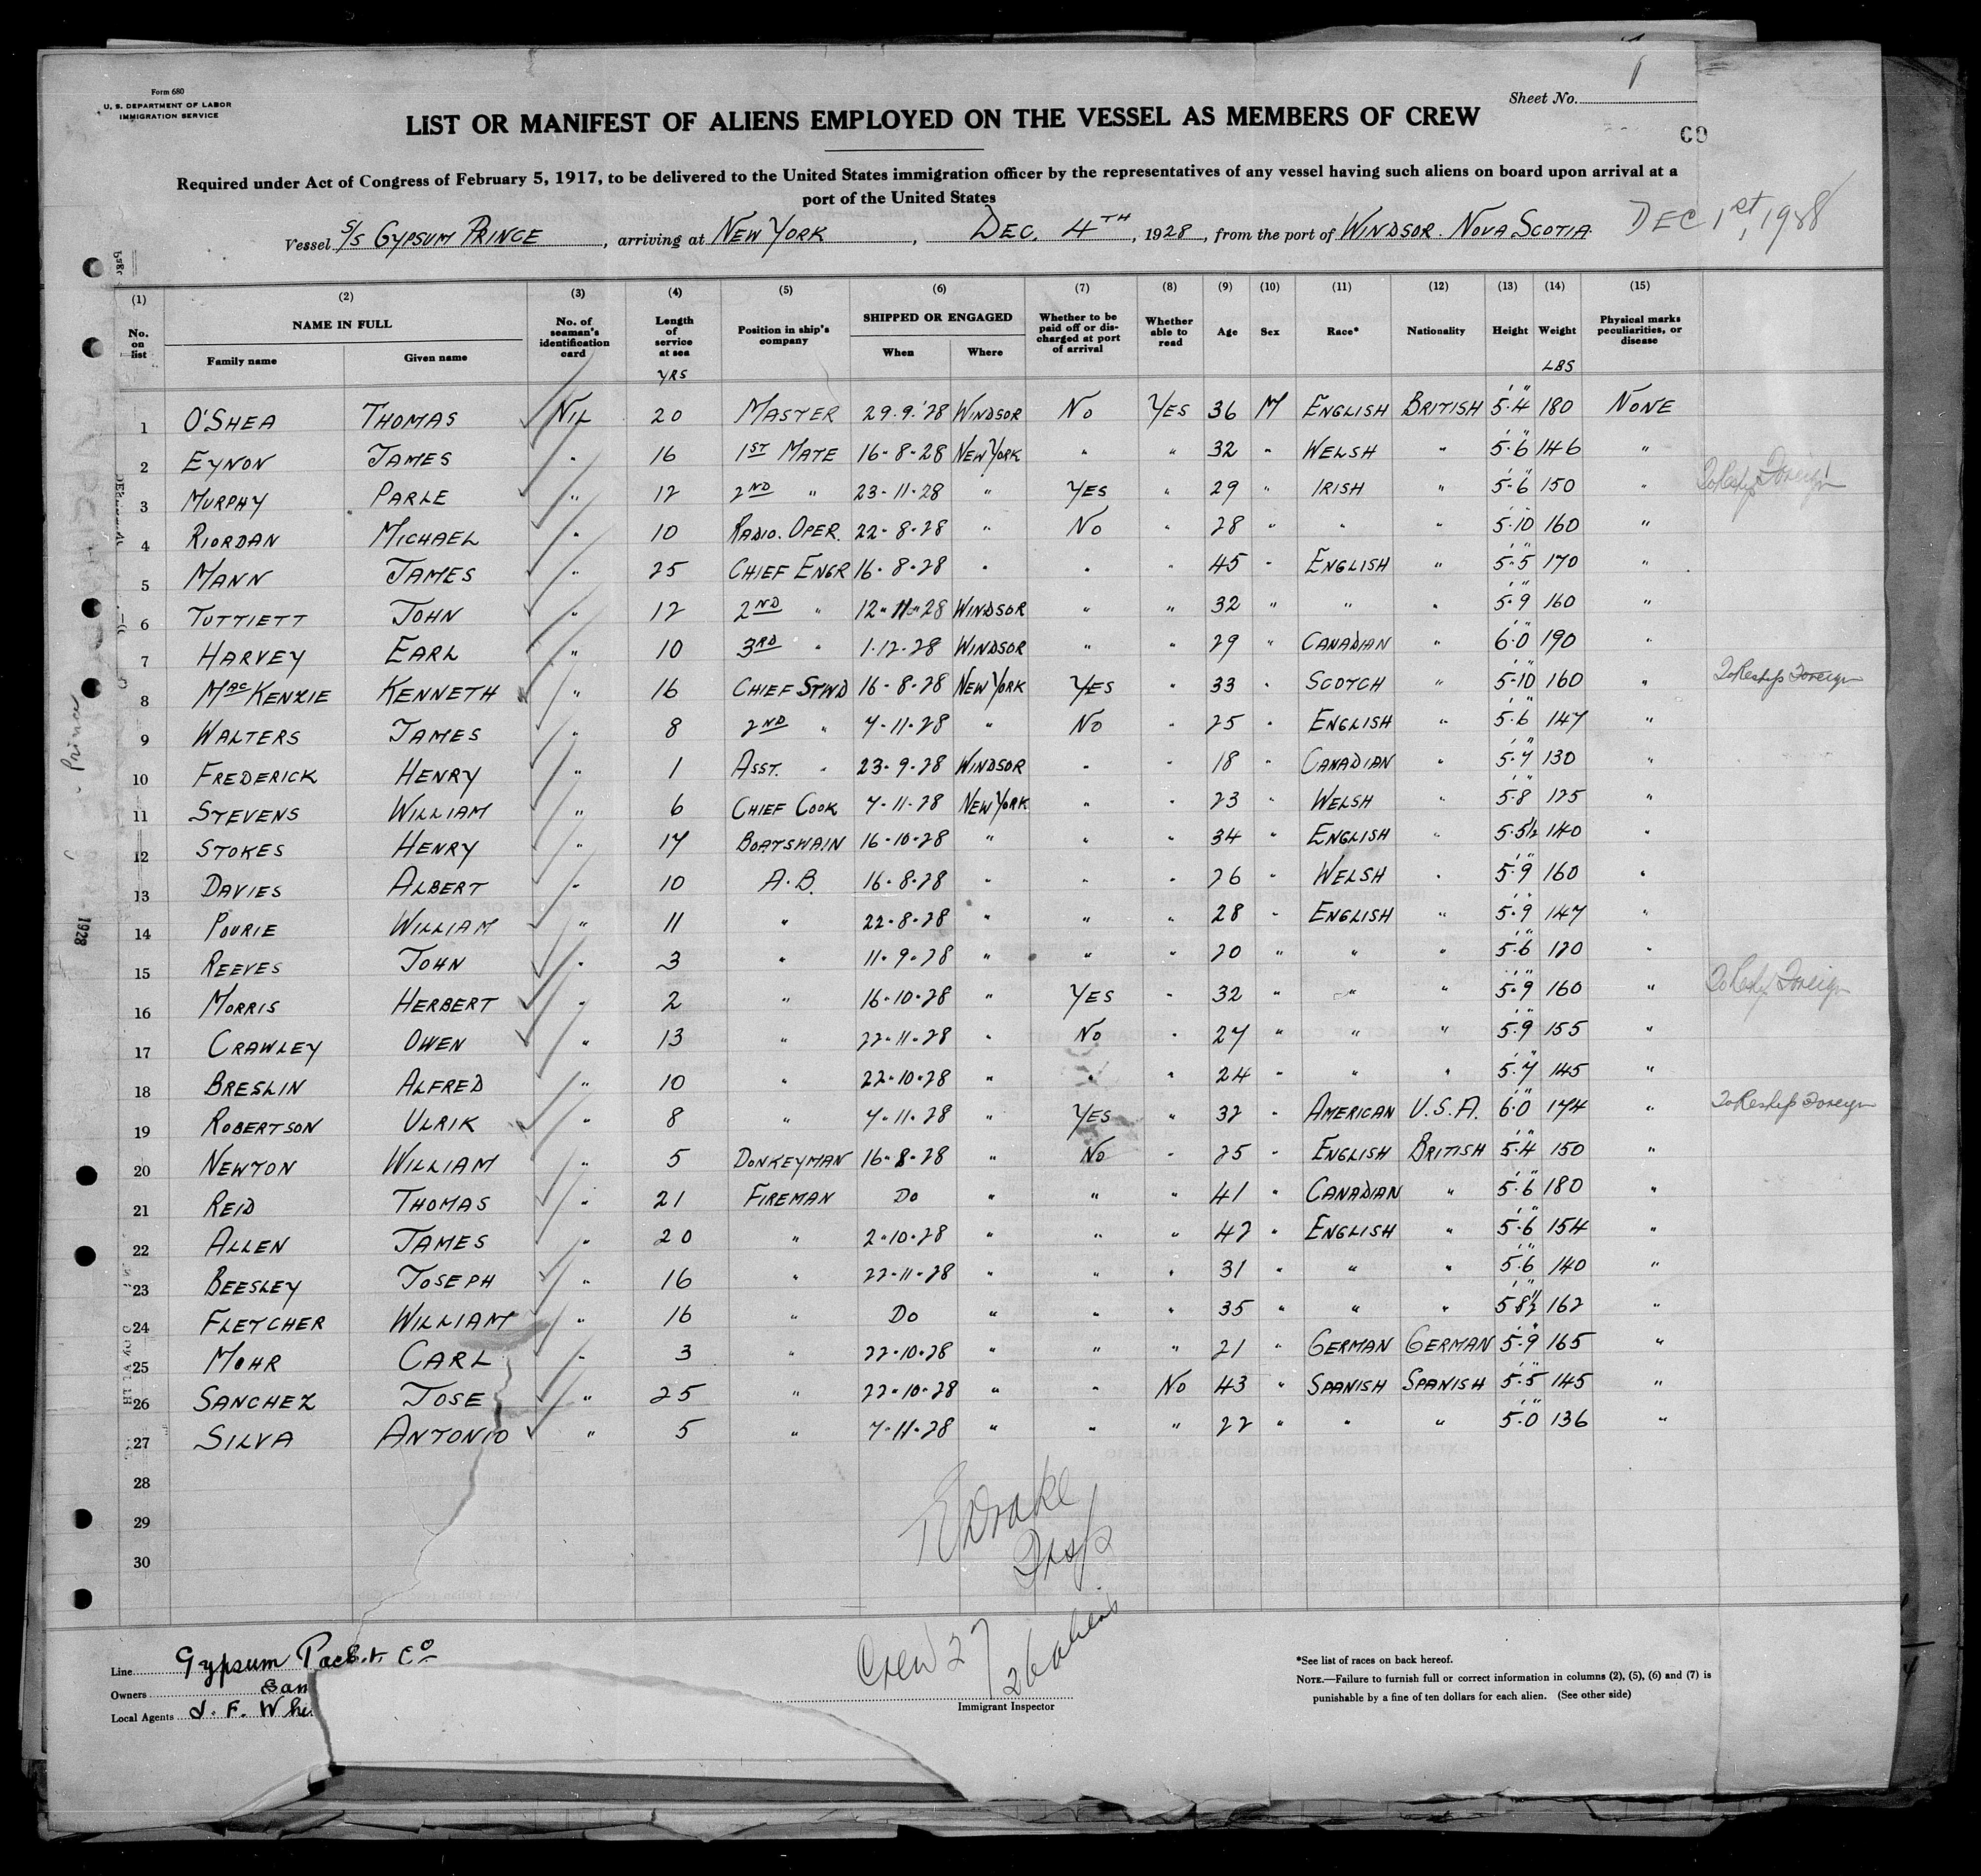 Form 680
U. S. DEPARTMENT OF LABOR
IMMIGRATION SERVICE
Sheet No. 1
LIST OR MANIFEST OF ALIENS EMPLOYED ON THE VESSEL AS MEMBERS OF CREW
Required under Act of Congress of February 5, 1917, to be delivered to the United States immigration officer by the representatives of any vessel having such aliens on board upon arrival at a
port of the United States
Vessel S/S GYPSUM PRINCE, arriving at NEW YORK, DEC. 4TH, 1928, from the port of WINDSOR. NOVA SCOTIA DEC 1st, 1928
(1) (2) (3) (4) (5) (6) (7) (8) (9) (10) (11) (12) (13) (14) (15)
No. on list NAME IN FULL Family name Given name No. of seaman's identification card Length of service at sea Position in ship's company SHIPPED OR ENGAGED When Where Whether to be paid off or discharged at port of arrival Whether able to read Age Sex Race* Nationality Height Weight Physical marks peculiarities, or disease
YRS LBS
1 O'SHEA THOMAS NIL 20 MASTER 29.9.'28 WINDSOR NO YES 36 M ENGLISH BRITISH 5'.4" 180 NONE
2 EYNON JAMES " 16 1ST MATE 16-8-28 NEW YORK " " 32 " WELSH " 5'.6" 146 "
3 MURPHY PARLE " 12 2ND " 23-11-28 " YES " 29 " IRISH " 5'-6" 150 " To Reship Foreign
4 RIORDAN MICHAEL " 10 RADIO. OPER. 22-8-28 " NO " 28 " " " 5'-10" 160 "
5 MANN JAMES " 25 CHIEF ENGR 16-8-28 " " " 45 " ENGLISH " 5'-5" 170 "
6 TUTTIETT JOHN " 12 2ND " 12-11-28 WINDSOR " " 32 " " " 5'.9" 160 "
7 HARVEY EARL " 10 3RD " 1-12-28 WINDSOR " " 29 " CANADIAN " 6'.0" 190 "
8 MACKENZIE KENNETH " 16 CHIEF STWD 16-8-28 NEW YORK YES " 33 " SCOTCH " 5'-10" 160 " To Reship Foreign
9 WALTERS JAMES " 8 2ND " 7-11-28 " NO " 25 " ENGLISH " 5'.6" 147 "
10 FREDERICK HENRY " 1 ASST. " 23-9-28 WINDSOR " " 18 " CANADIAN " 5'.7" 130 "
11 STEVENS WILLIAM " 6 CHIEF COOK 7-11-28 NEW YORK " " 23 " WELSH " 5'.8" 125 "
12 STOKES HENRY " 17 BOATSWAIN 16-10-28 " " " 34 " ENGLISH " 5'.5½" 140 "
13 DAVIES ALBERT " 10 A.B. 16-8-28 " " " 26 " WELSH " 5'.9" 160 "
14 POURIE WILLIAM " 11 " 22-8-28 " " " 28 " ENGLISH " 5'.9" 147 "
15 REEVES JOHN " 3 " 11-9-28 " " " 20 " " " 5'.6" 120 "
16 MORRIS HERBERT " 2 " 16-10-28 " YES " 32 " " " 5'.9" 160 " To Reship Foreign
17 CRAWLEY OWEN " 13 " 22-11-28 " NO " 27 " " " 5'.9" 155 "
18 BRESLIN ALFRED " 10 " 22-10-28 " " " 24 " " " 5'.7" 145 "
19 ROBERTSON ULRIK " 8 " 7-11-28 " YES " 32 " AMERICAN U.S.A. 6'.0" 174 " To Reship Foreign
20 NEWTON WILLIAM " 5 DONKEYMAN 16-8-28 " NO " 25 " ENGLISH BRITISH 5'.4" 150 "
21 REID THOMAS " 21 FIREMAN DO " " " 41 " CANADIAN " 5'.6" 180 "
22 ALLEN JAMES " 20 " 2-10-28 " " " 42 " ENGLISH " 5'.6" 154 "
23 BEESLEY JOSEPH " 16 " 22-11-28 " " " 31 " " " 5'.6" 140 "
24 FLETCHER WILLIAM " 16 " DO " " " 35 " " " 5'8½" 162 "
25 MOHR CARL " 3 " 22-10-28 " " " 21 " GERMAN GERMAN 5'.9" 165 "
26 SANCHEZ JOSE " 25 " 22-10-28 " " NO 43 " SPANISH SPANISH 5'.5" 145 "
27 SILVA ANTONIO " 5 " 7-11-28 " " " 22 " " " 5'.0" 136 "
28
29
30
Drake
Insp
Crew 27
26 aliens
Line Gypsum Packet Co
Owners Sam
Local Agents J. F. Whi
Immigrant Inspector
*See list of races on back hereof.
NOTE.—Failure to furnish full or correct information in columns (2), (5), (6) and (7) is
punishable by a fine of ten dollars for each alien. (See other side)
Prince
1928